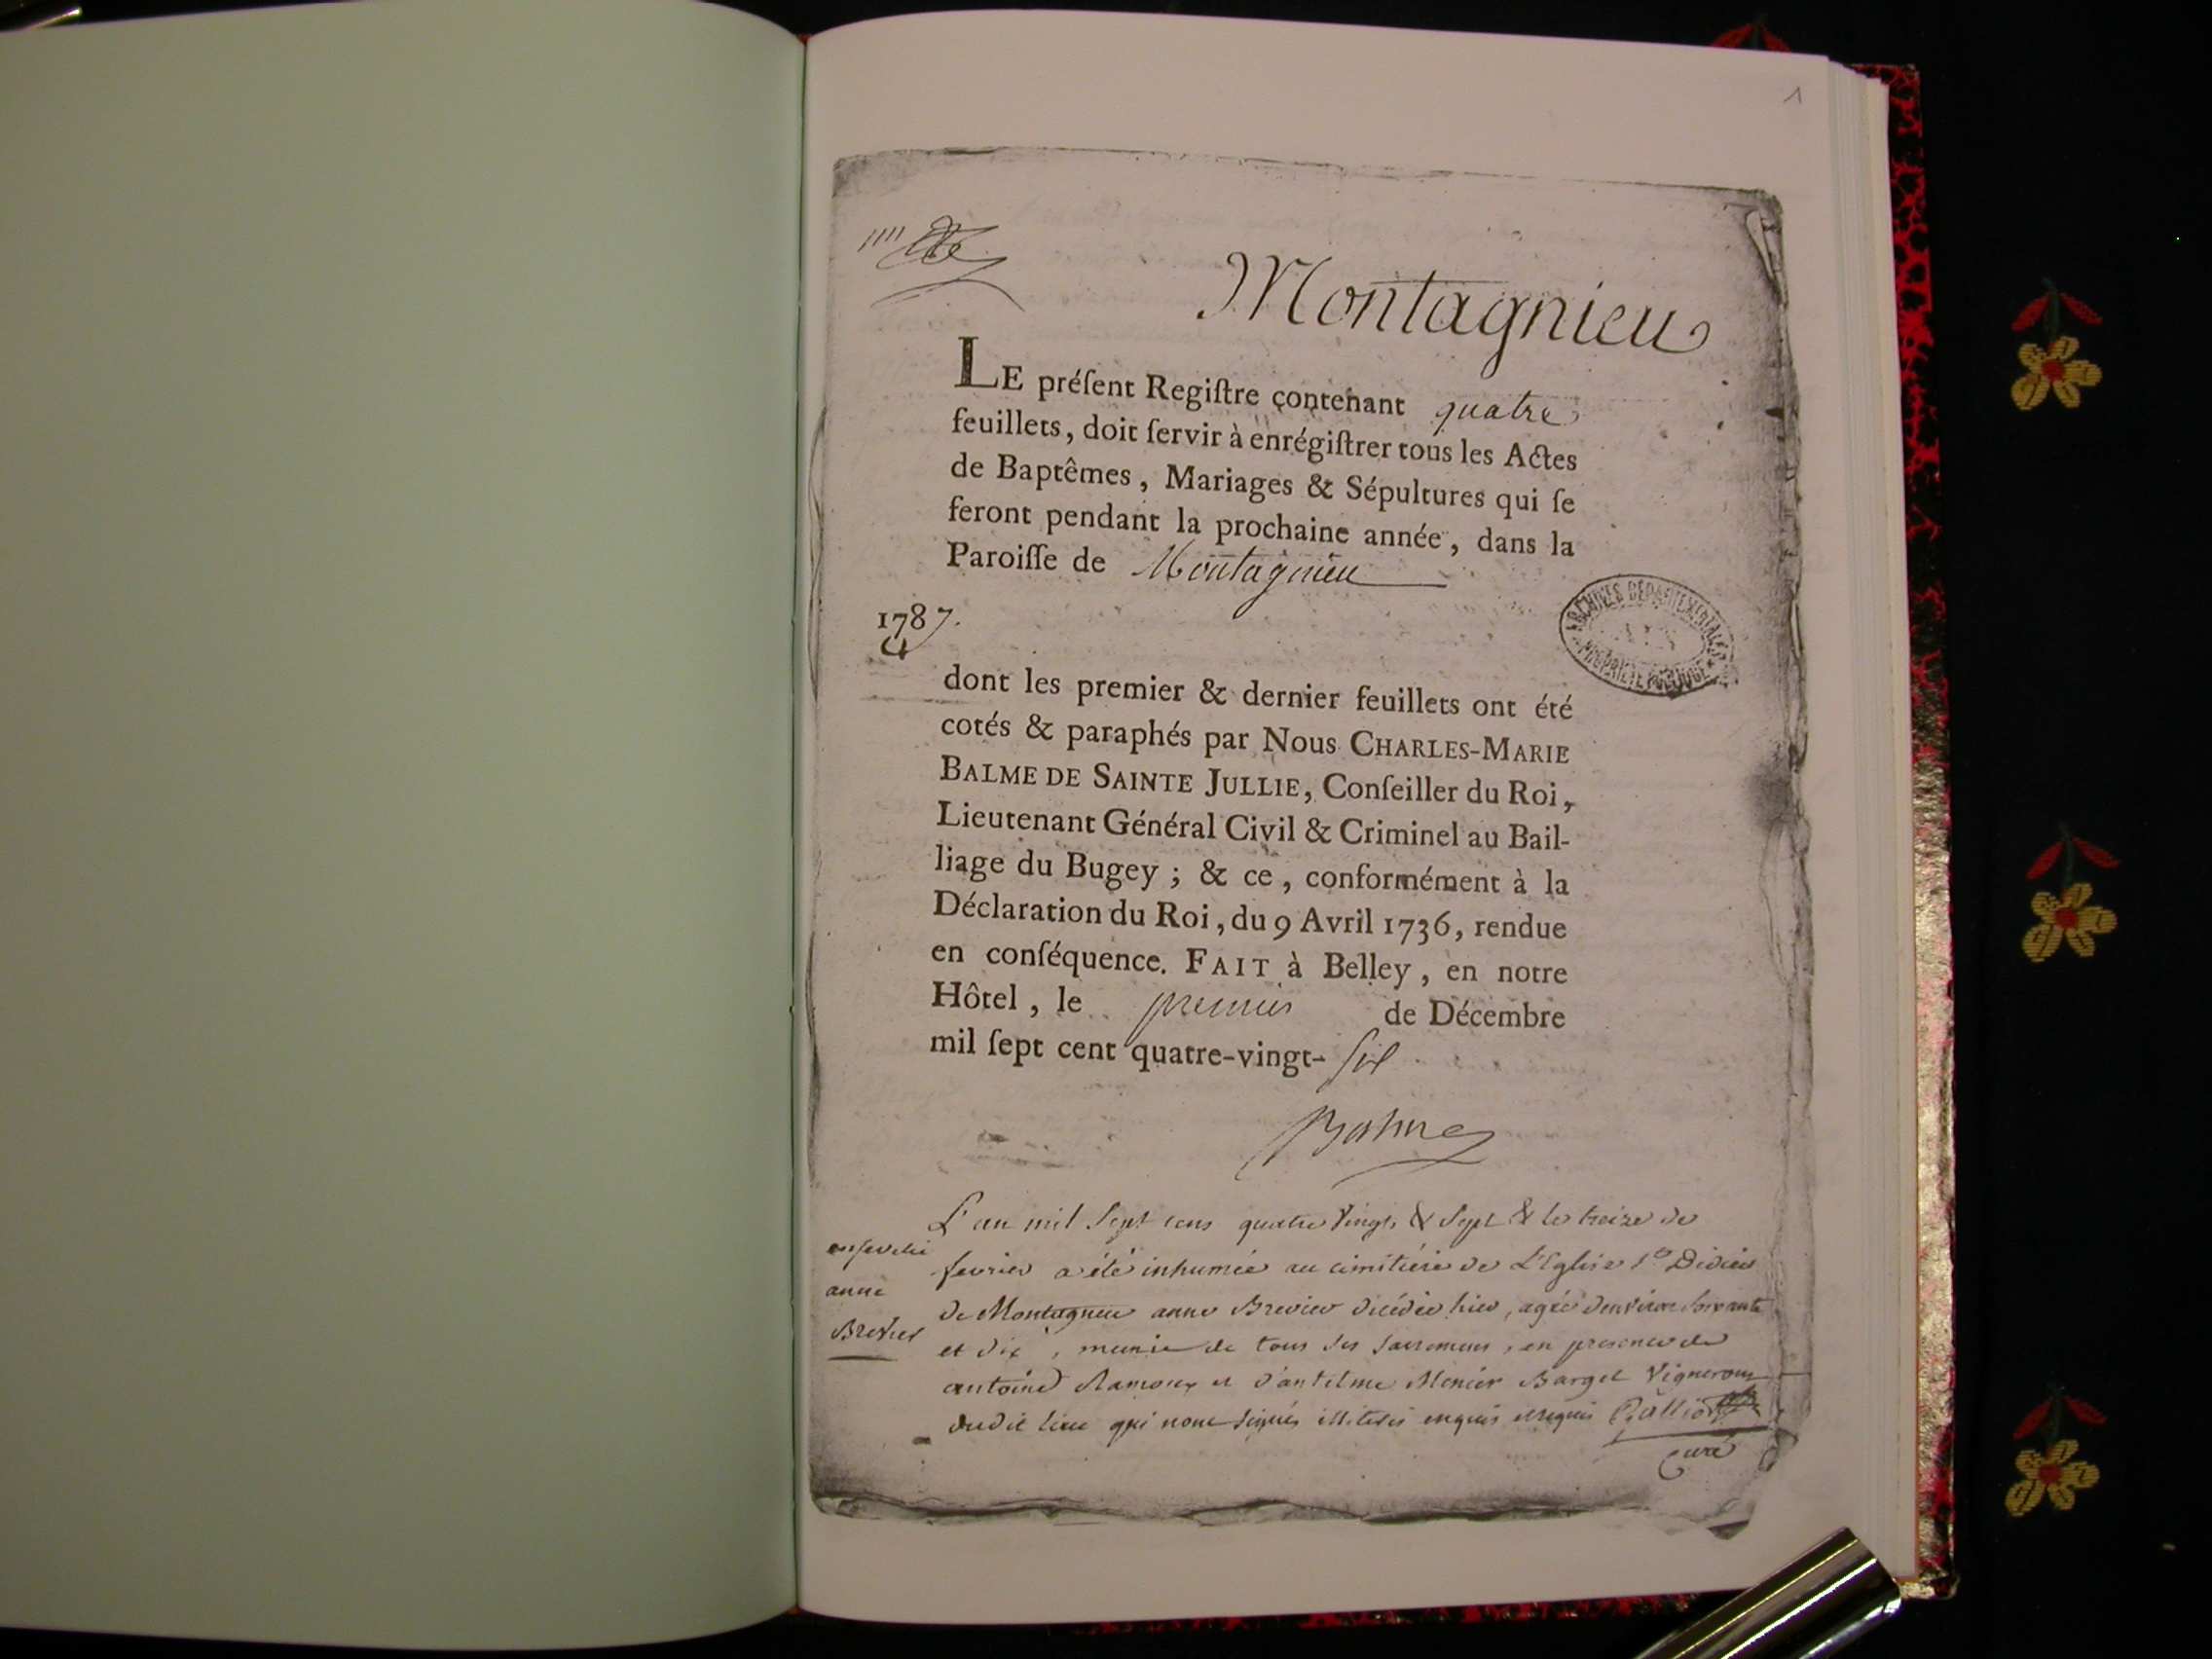 1
Montagnieu
LE préſent Regiſtre contenant quatre
feuillets, doit ſervir à enrégiſtrer tous les Actes
de Baptêmes, Mariages & Sépultures qui ſe
feront pendant la prochaine année, dans la
Paroiſſe de Montagnieu
1787.
ARCHIVES DÉPARTEMENTALES
PROPRIÉTÉ PUBLIQUE
dont les premier & dernier feuillets ont été
cotés & paraphés par Nous CHARLES-MARIE
BALME DE SAINTE JULLIE, Conſeiller du Roi,
Lieutenant Général Civil & Criminel au Bail-
liage du Bugey ; & ce, conformément à la
Déclaration du Roi, du 9 Avril 1736, rendue
en conſéquence. FAIT à Belley, en notre
Hôtel, le premier de Décembre
mil ſept cent quatre-vingt-six
Balme
L'an mil Sept cens quatre vingts & Sept & le treize de
ensevelie
fevrier a été inhumée au cimitiére de L'Eglise St Didier
anne
de Montagnieu anne Brevier décédée hier, agée denviron soixante
Brevier
et dix, munie de tous ses sacremens, en presence de
antoine Ramoux et d'antelme Menier Barget Vignerons
dudit lieu qui nont signés illiterés enquis et requis
Curé